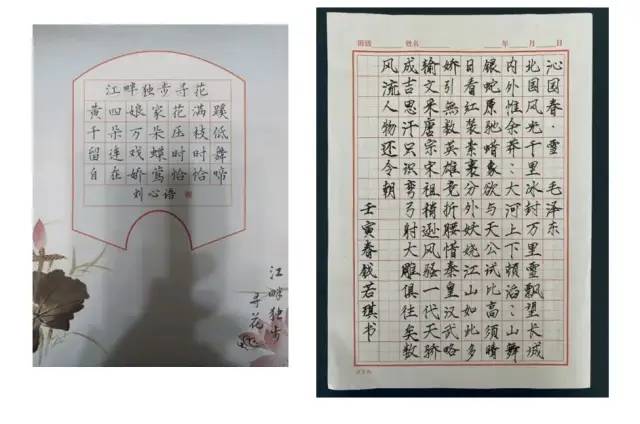 江畔独步寻花
黄四娘家花满蹊
千朵万朵压枝低
留连戏蝶时时舞
自在娇莺恰恰啼
刘心语
江畔独步
寻花
班级 姓名 年 月 日
沁园春·雪 毛泽东
北国风光千里冰封万里雪飘望长城
内外惟余莽:大河上下顿滔:山舞
银蛇原驰蜡象欲与天公试比高须晴
日看红装素裹分外妖娆江山如此多
娇引無数英雄竞折腰惜秦皇汉武略
输文采唐宗宋祖稍逊风骚一代天骄
成吉思汗只识弯弓射大雕俱往矣数
风流人物还今朝
壬寅春钱若琪书